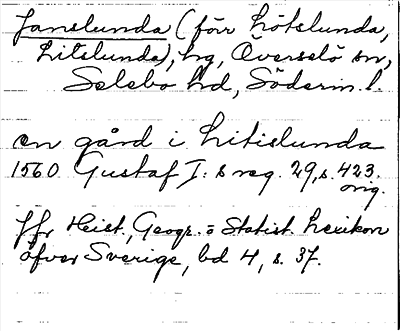 Janslunda (förr Lötslunda,
Litslunda), hg, Överselö sn,
Selebo hd, Söderm. l.
en gård i Litislunda
1560 Gustaf I:s reg. 29, s. 423.
orig.
Jfr Hist., Geogr. o Statist. Lexikon
öfver Sverige, bd 4, s. 37.